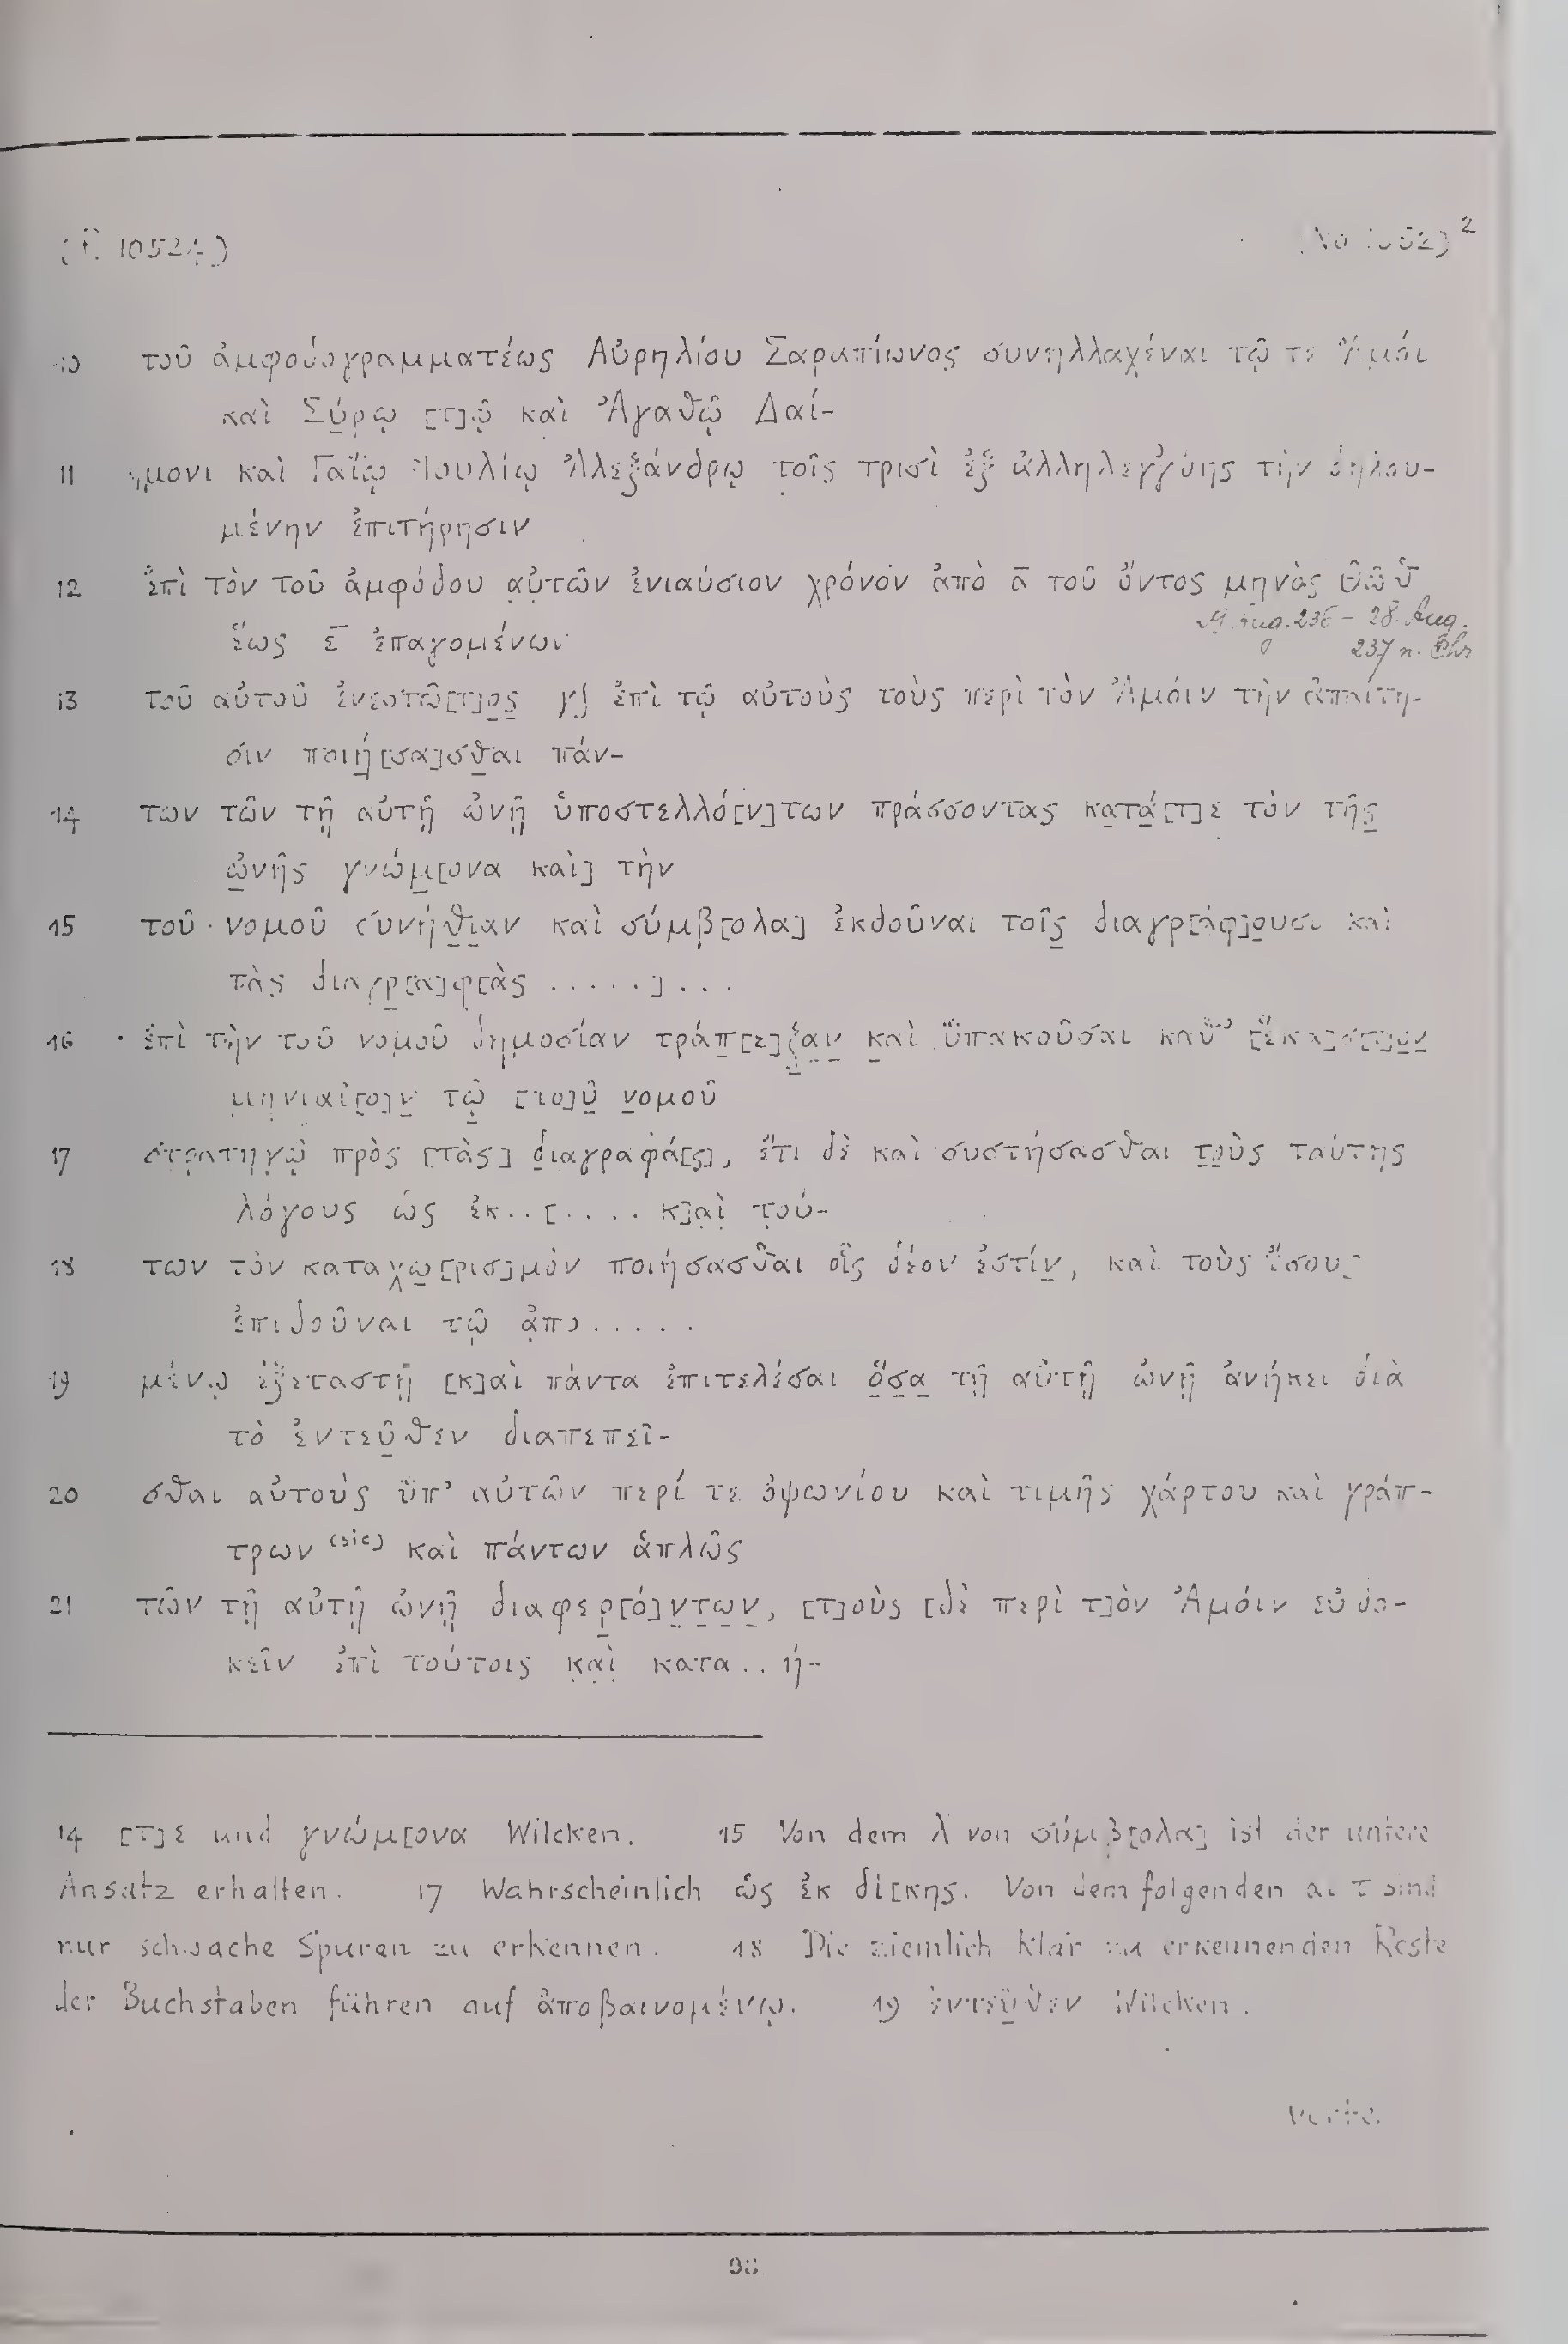 (P. 10524) (No 1062) 2
10 τοῦ ἀμφοδογραμματέως Αὐρηλίου Σαραπίωνος συνηλλαχέναι τῷ τε Ἀμόι
καὶ Σύρῳ [τ]ῷ καὶ Ἀγαθῷ Δαί-
11 μονι καὶ Γαΐῳ Ἰουλίῳ Ἀλεξάνδρῳ τοῖς τρισὶ ἐξ ἀλληλεγγύης τὴν δηλου-
μένην ἐπιτήρησιν
12 ἐπὶ τὸν τοῦ ἀμφόδου αὐτῶν ἐνιαύσιον χρόνον ἀπὸ α̅ τοῦ ὄντος μηνὸς Θώθ
29. Aug. 236 – 28. Aug.
ἕως ε̅ ἐπαγομένων
237 n. Chr
13 τοῦ αὐτοῦ ἐνεστῶ[τ]ο̣ς̣ γ∫ ἐπὶ τῷ αὐτοὺς τοὺς περὶ τὸν Ἀμόιν τὴν ἀπαίτη-
σιν ποιή̣[σα]σθ̣αι πάν-
14 των τῶν τῇ αὐτῇ ὠνῇ ὑποστελλό[ν]των πράσσοντας κα̣τά̣[τ]ε τὸν τῆς̣
ὠ̣νῆς γνώμ̣[ονα καὶ] τὴν
15 τοῦ νομοῦ συνήθ̣ι̣αν καὶ σύμβ[ολα] ἐκδοῦναι τοῖς̣ διαγρ[άφ]ο̣υσι καὶ
τὰς διαγρ̣[α]φ[ὰς .....]...
16 ἐπὶ τὴν τοῦ νομοῦ δημοσίαν τράπ̣[ε]ζ̣α̣ν̣ κ̣αὶ ὑπακοῦσαι καθ’ [ἕκα]σ[τ]ο̣ν̣
μ̣ηνιαῖ[ο]ν̣ τῷ̣ [το]ῦ̣ ν̣ομοῦ
17 στρατηγῷ πρὸς [τὰς] δ̣ιαγραφά[ς], ἔτι δὲ καὶ συστήσασθαι τ̣ο̣ὺς ταύτης
λόγους ὡς ἐκ..[.... κ]α̣ὶ̣ τ̣ού-
18 των τὸν καταχω̣[ρισ]μὸν ποιήσασθαι οἷς δέον ἐστίν̣, καὶ τοὺς ἴσους
ἐπιδοῦναι τῷ ἀ̣πο.....
19 μένῳ ἐξεταστῇ [κ]αὶ πάντα ἐπιτελέσαι ὅ̣σ̣α̣ τῇ αὐτῇ ὠνῇ ἀνήκει διὰ
τὸ ἐντεῦ̣θεν διαπεπεῖ-
20 σθαι αὐτοὺς ὑπ’ αὐτῶν περί τε ὀψωνίου καὶ τιμῆς χάρτου καὶ γράπ-
τρων (sic) καὶ πάντων ἁπλῶς
21 τῶν τῇ αὐτῇ ὠνῇ διαφερ̣[ό]ν̣τ̣ω̣ν̣, [τ]οὺς [δὲ περὶ τ]ὸν Ἀμόιν εὐδο-
κεῖν ἐπὶ τούτοις κ̣α̣ὶ̣ κατα..ή-
14 [τ]ε und γνώμ[ονα Wilcken. 15 Von dem λ von σύμβ[ολα] ist der untere
Ansatz erhalten. 17 Wahrscheinlich ὡς ἐκ δί[κης. Von dem folgenden αι τ sind
nur schwache Spuren zu erkennen. 18 Die ziemlich klar zu erkennenden Reste
der Buchstaben führen auf ἀποβαινομένῳ. 19 ἐντεῦ̣θεν Wilcken.
verte.
98